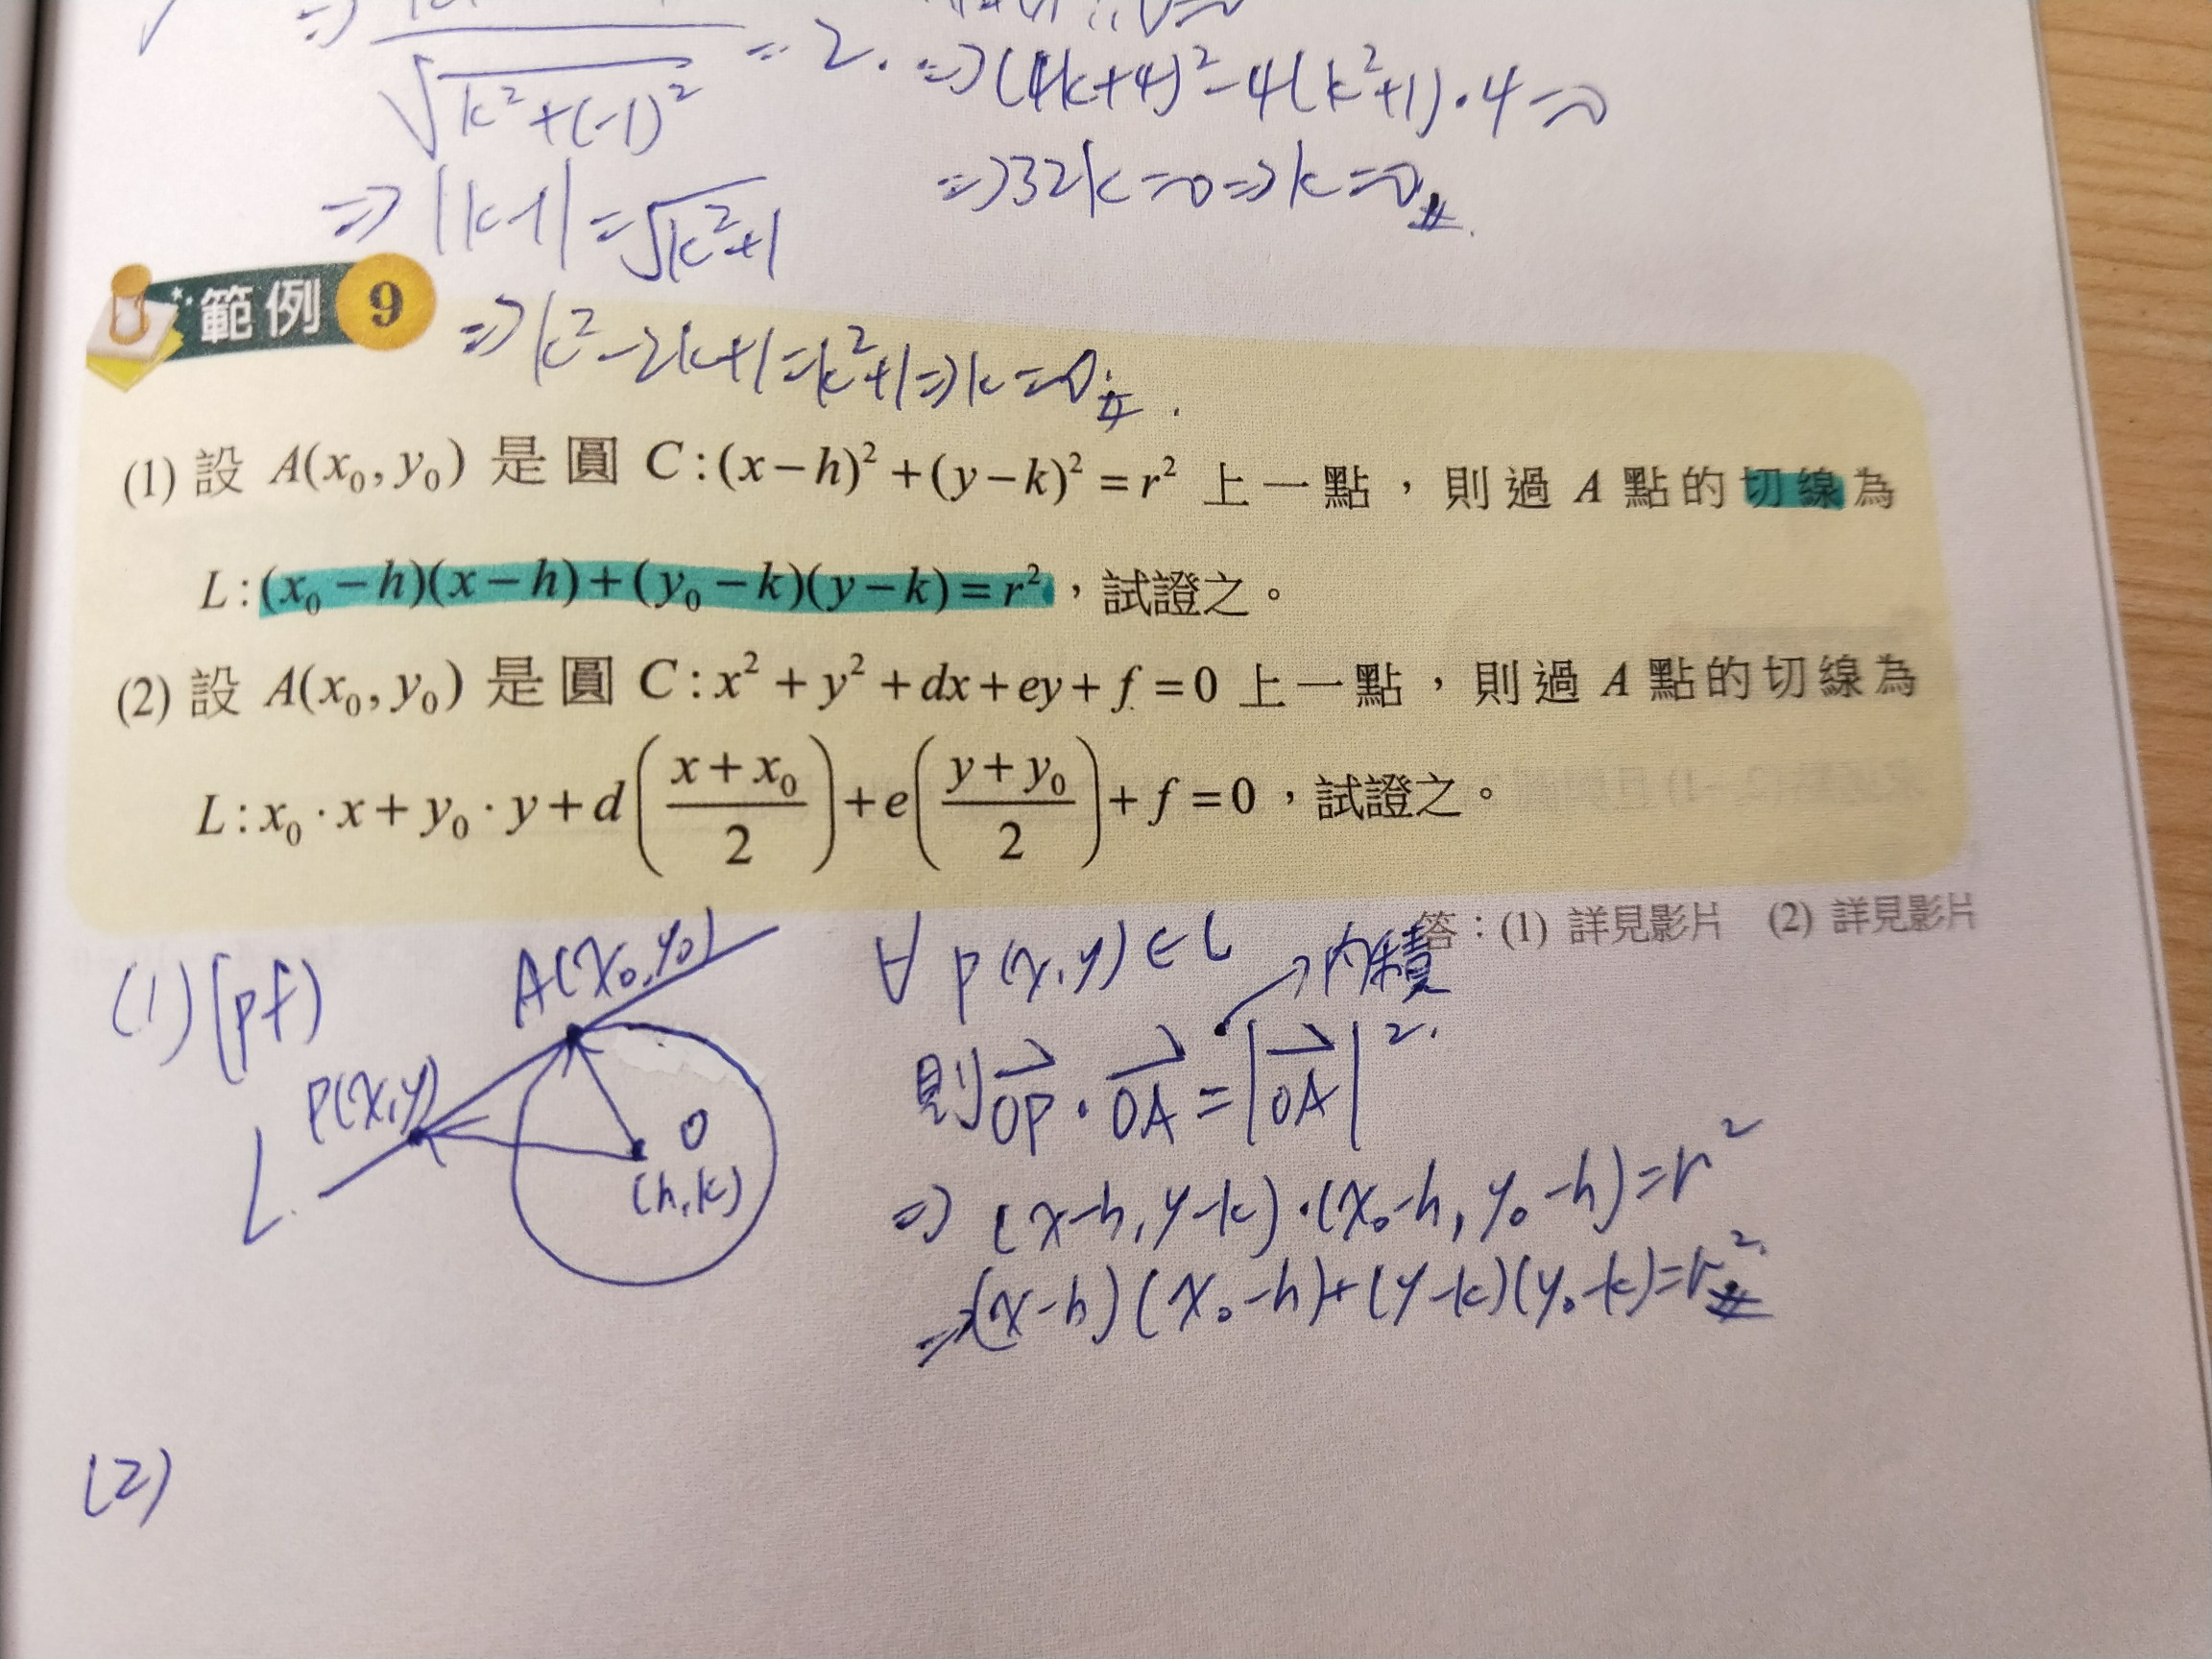 ⇒ / √(k²+(-1)²) = 2.
⇒ (4k+4)² - 4(k²+1)·4 = 0
⇒ |k-1| = √(k²+1)
⇒ 32k = 0 ⇒ k = 0 #.
範例 9
⇒ k² - 2k + 1 = k² + 1 ⇒ k = 0 #.
(1) 設 A(x₀, y₀) 是圓 C : (x-h)² + (y-k)² = r² 上一點，則過 A 點的切線為
L : (x₀-h)(x-h) + (y₀-k)(y-k) = r²，試證之。
(2) 設 A(x₀, y₀) 是圓 C : x² + y² + dx + ey + f = 0 上一點，則過 A 點的切線為
L : x₀·x + y₀·y + d((x+x₀)/2) + e((y+y₀)/2) + f = 0，試證之。
答：(1) 詳見影片 (2) 詳見影片
(1) (pf)
A(x₀, y₀)
P(x, y)
L
O
(h, k)
∀ P(x, y) ∈ L
內積
則 OP⃗ · OA⃗ = |OA⃗|².
⇒ (x-h, y-k)·(x₀-h, y₀-h) = r²
⇒ (x-h)(x₀-h) + (y-k)(y₀-k) = r² #
(2)